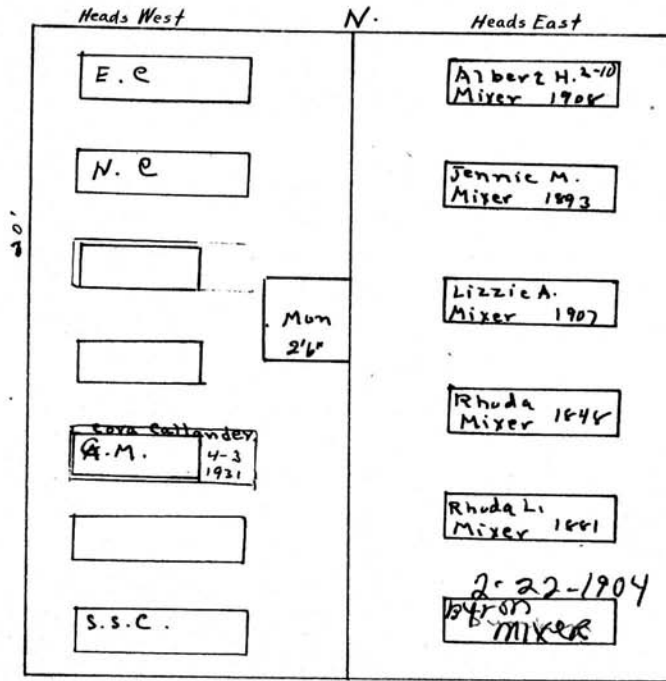 Heads West
N.
Heads East
E. C
N. C
20'
Cora Callander
C.M.
4-3
1931
S.S.C.
Mon
2'6"
Albert H. 2-10
Mixer 1908
Jennie M.
Mixer 1893
Lizzie A.
Mixer 1907
Rhuda
Mixer 1848
Rhuda L.
Mixer 1881
2-22-1904
Byron
MIXER